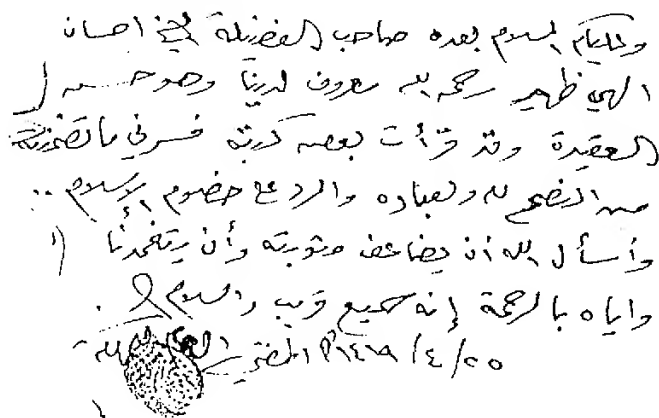 وعليكم السلام بعده صاحب الفضيلة الشيخ احسان
الهي ظهير رحمه الله معروف لدينا وهو حسن
العقيدة وقد قرأت بعض كتبه فسرني ما تضمنته
من النصح لله ولعباده والرد على خصوم الإسلام ..
وأسأل الله أن يضاعف مثوبته وأن يتغمدنا
واياه بالرحمة إنه سميع قريب والسلام
٢٥/٤/١٤١٩ المفتي العام للمملكة